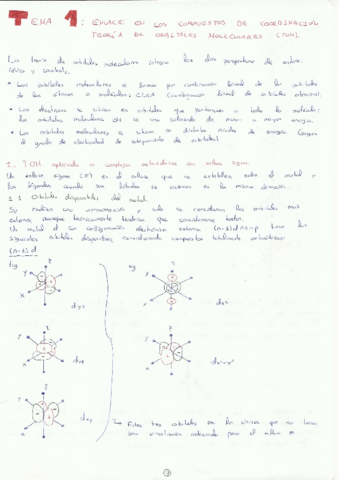 TEMA 1: ENLACE EN LOS COMPUESTOS DE COORDINACIÓN
TEORÍA DE ORBITALES MOLECULARES (TOM).
La teoría de orbitales moleculares integra las dos perspectivas de enlace:
iónico y covalente.
• Los orbitales moleculares se forman por combinación lineal de los orbitales
de los átomos o moléculas; CLOA (combinación lineal de orbitales atómicos).
• Los electrones se sitúan en orbitales que pertenecen a toda la molécula;
los orbitales moleculares de menor a mayor energía.
• Los orbitales moleculares se sitúan en distintos niveles de energía (según
el grado de de orbitales)
1. TOM aplicada a complejos octaédricos en enlace sigma.
Un enlace sigma (σ) es el enlace que se establece entre el metal y
los ligandos cuando sus lóbulos se en la misma dirección.
1.1 Orbitales disponibles del metal.
Se realiza una aproximación y solo se consideran los orbitales más
externos, aunque teóricamente todos.
Un metal d con configuración electrónica externa (n-1)d ns np tiene los
siguientes orbitales disponibles, considerando compuestos totalmente octaédricos:
(n-1)d
t2g
z
y
x
dyz
eg
z
y
x
dz²
z
y
x
dxz
z
y
x
dx²-y²
z
y
x
dxy
Estos tres orbitales son los únicos que no tienen
una orientación adecuada para el enlace σ
1